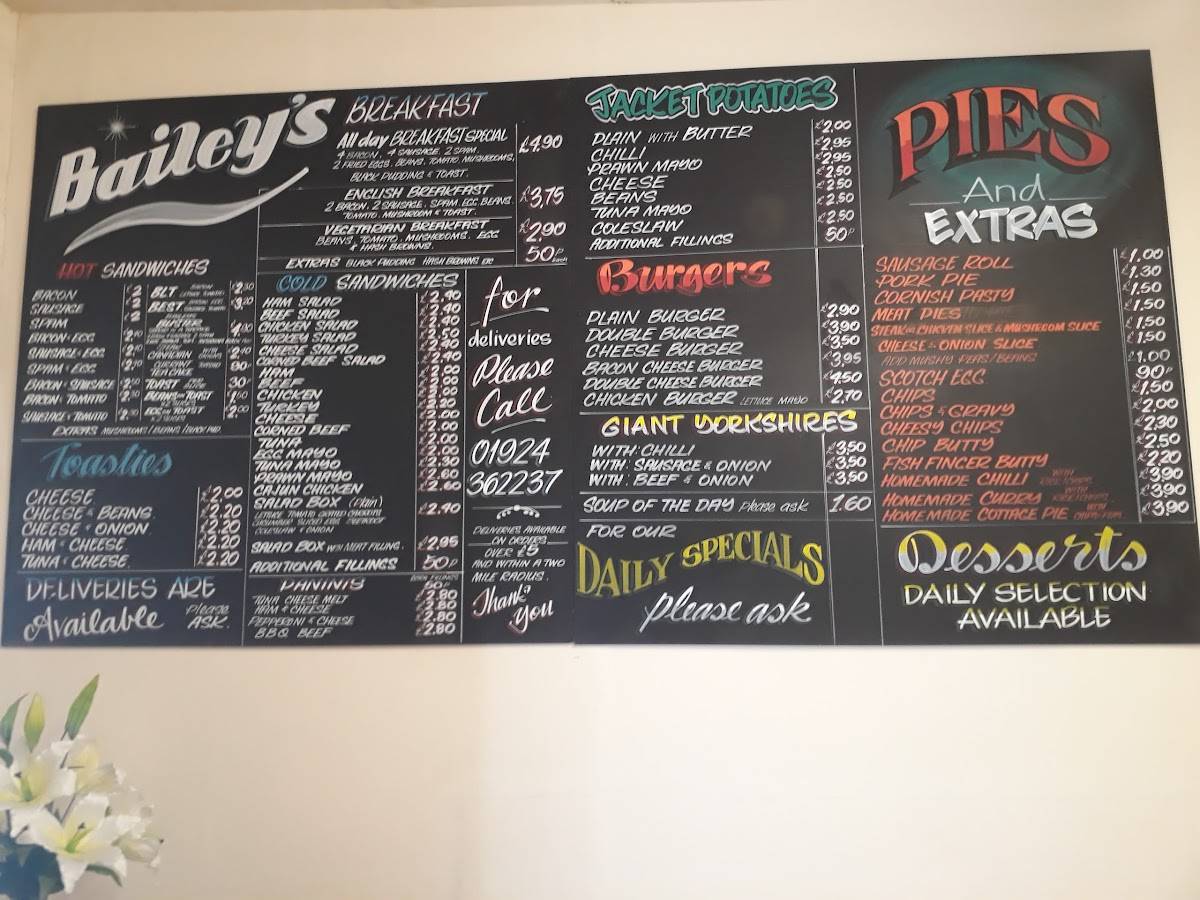 Bailey's
BREAKFAST
All day BREAKFAST SPECIAL £4.90
4 BACON, 4 SAUSAGE, 2 SPAM,
2 FRIED EGGS, BEANS, TOMATO, MUSHROOMS,
BLACK PUDDING & TOAST.
ENGLISH BREAKFAST £3.75
2 BACON, 2 SAUSAGE, SPAM, EGG, BEANS
TOMATO, MUSHROOM & TOAST.
VEGETARIAN BREAKFAST £2.90
BEANS, TOMATO, MUSHROOMS, EGG
& HASH BROWNS.
EXTRAS BLACK PUDDING HASH BROWNS ETC 50P each
HOT SANDWICHES
BACON £2
SAUSAGE £2
SPAM £2
BACON & EGG
SAUSAGE & EGG
SPAM & EGG
BACON & SAUSAGE
BACON & TOMATO
SAUSAGE & TOMATO
BLT
BEST
BUSTER
CANADIAN
TEA CAKE 90P
TOAST 30P
BEANS ON TOAST
EGG ON TOAST £2.00
EXTRAS MUSHROOMS / BEANS / BLACK PUD.
Toasties
CHEESE £2.00
CHEESE & BEANS £2.20
CHEESE & ONION £2.20
HAM & CHEESE £2.20
TUNA & CHEESE. £2.20
DELIVERIES ARE
Available Please
ASK.
COLD SANDWICHES
HAM SALAD £2.40
BEEF SALAD £2.40
CHICKEN SALAD
TURKEY SALAD
CHEESE SALAD
CORNED BEEF SALAD
HAM
BEEF
CHICKEN
TURKEY
CHEESE
CORNED BEEF
TUNA
EGG MAYO
TUNA MAYO
PRAWN MAYO
CAJUN CHICKEN £2.60
SALAD BOX (Plain) £2.40
LETTUCE TOMATO GRATED CARROTS
CUCUMBER SLICED EGG BEETROOT
COLESLAW & ONION
SALAD BOX WITH MEAT FILLING. £2.95
ADDITIONAL FILLINGS 50P
PANINIS
50P
TUNA CHEESE MELT £2.80
HAM & CHEESE £2.80
PEPPERONI & CHEESE £2.80
B.B.Q BEEF £2.80
for
deliveries
Please
Call
01924
362237
DELIVERIES AVAILABLE
ON ORDERS
OVER £5
AND WITHIN A TWO
MILE RADIUS.
Thank
You
JACKET POTATOES
PLAIN WITH BUTTER £2.00
CHILLI £2.95
PRAWN MAYO £2.95
CHEESE £2.50
BEANS £2.50
TUNA MAYO £2.50
COLESLAW £2.50
ADDITIONAL FILLINGS 50P
Burgers
PLAIN BURGER £2.90
DOUBLE BURGER £3.90
CHEESE BURGER £3.50
BACON CHEESE BURGER £3.95
DOUBLE CHEESE BURGER £4.50
CHICKEN BURGER LETTUCE MAYO £2.70
GIANT YORKSHIRES
WITH: CHILLI £3.50
WITH: SAUSAGE & ONION £3.50
WITH: BEEF & ONION £3.50
SOUP OF THE DAY Please ask 1.60
FOR OUR
DAILY SPECIALS
please ask
PIES
And
EXTRAS
SAUSAGE ROLL £1.00
PORK PIE £1.30
CORNISH PASTY £1.50
MEAT PIES £1.50
STEAK OR CHICKEN SLICE & MUSHROOM SLICE £1.50
CHEESE & ONION SLICE £1.50
ADD MUSHY PEAS/BEANS £1.00
SCOTCH EGG 90P
CHIPS £1.50
CHIPS & GRAVY £2.00
CHEESY CHIPS £2.30
CHIP BUTTY £2.50
FISH FINGER BUTTY £2.20
HOMEMADE CHILLI WITH RICE/CHIPS £3.90
HOMEMADE CURRY WITH RICE/CHIPS £3.90
HOMEMADE COTTAGE PIE WITH £3.90
Desserts
DAILY SELECTION
AVAILABLE